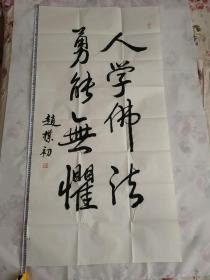 人学佛法
勇能無懼
趙樸初